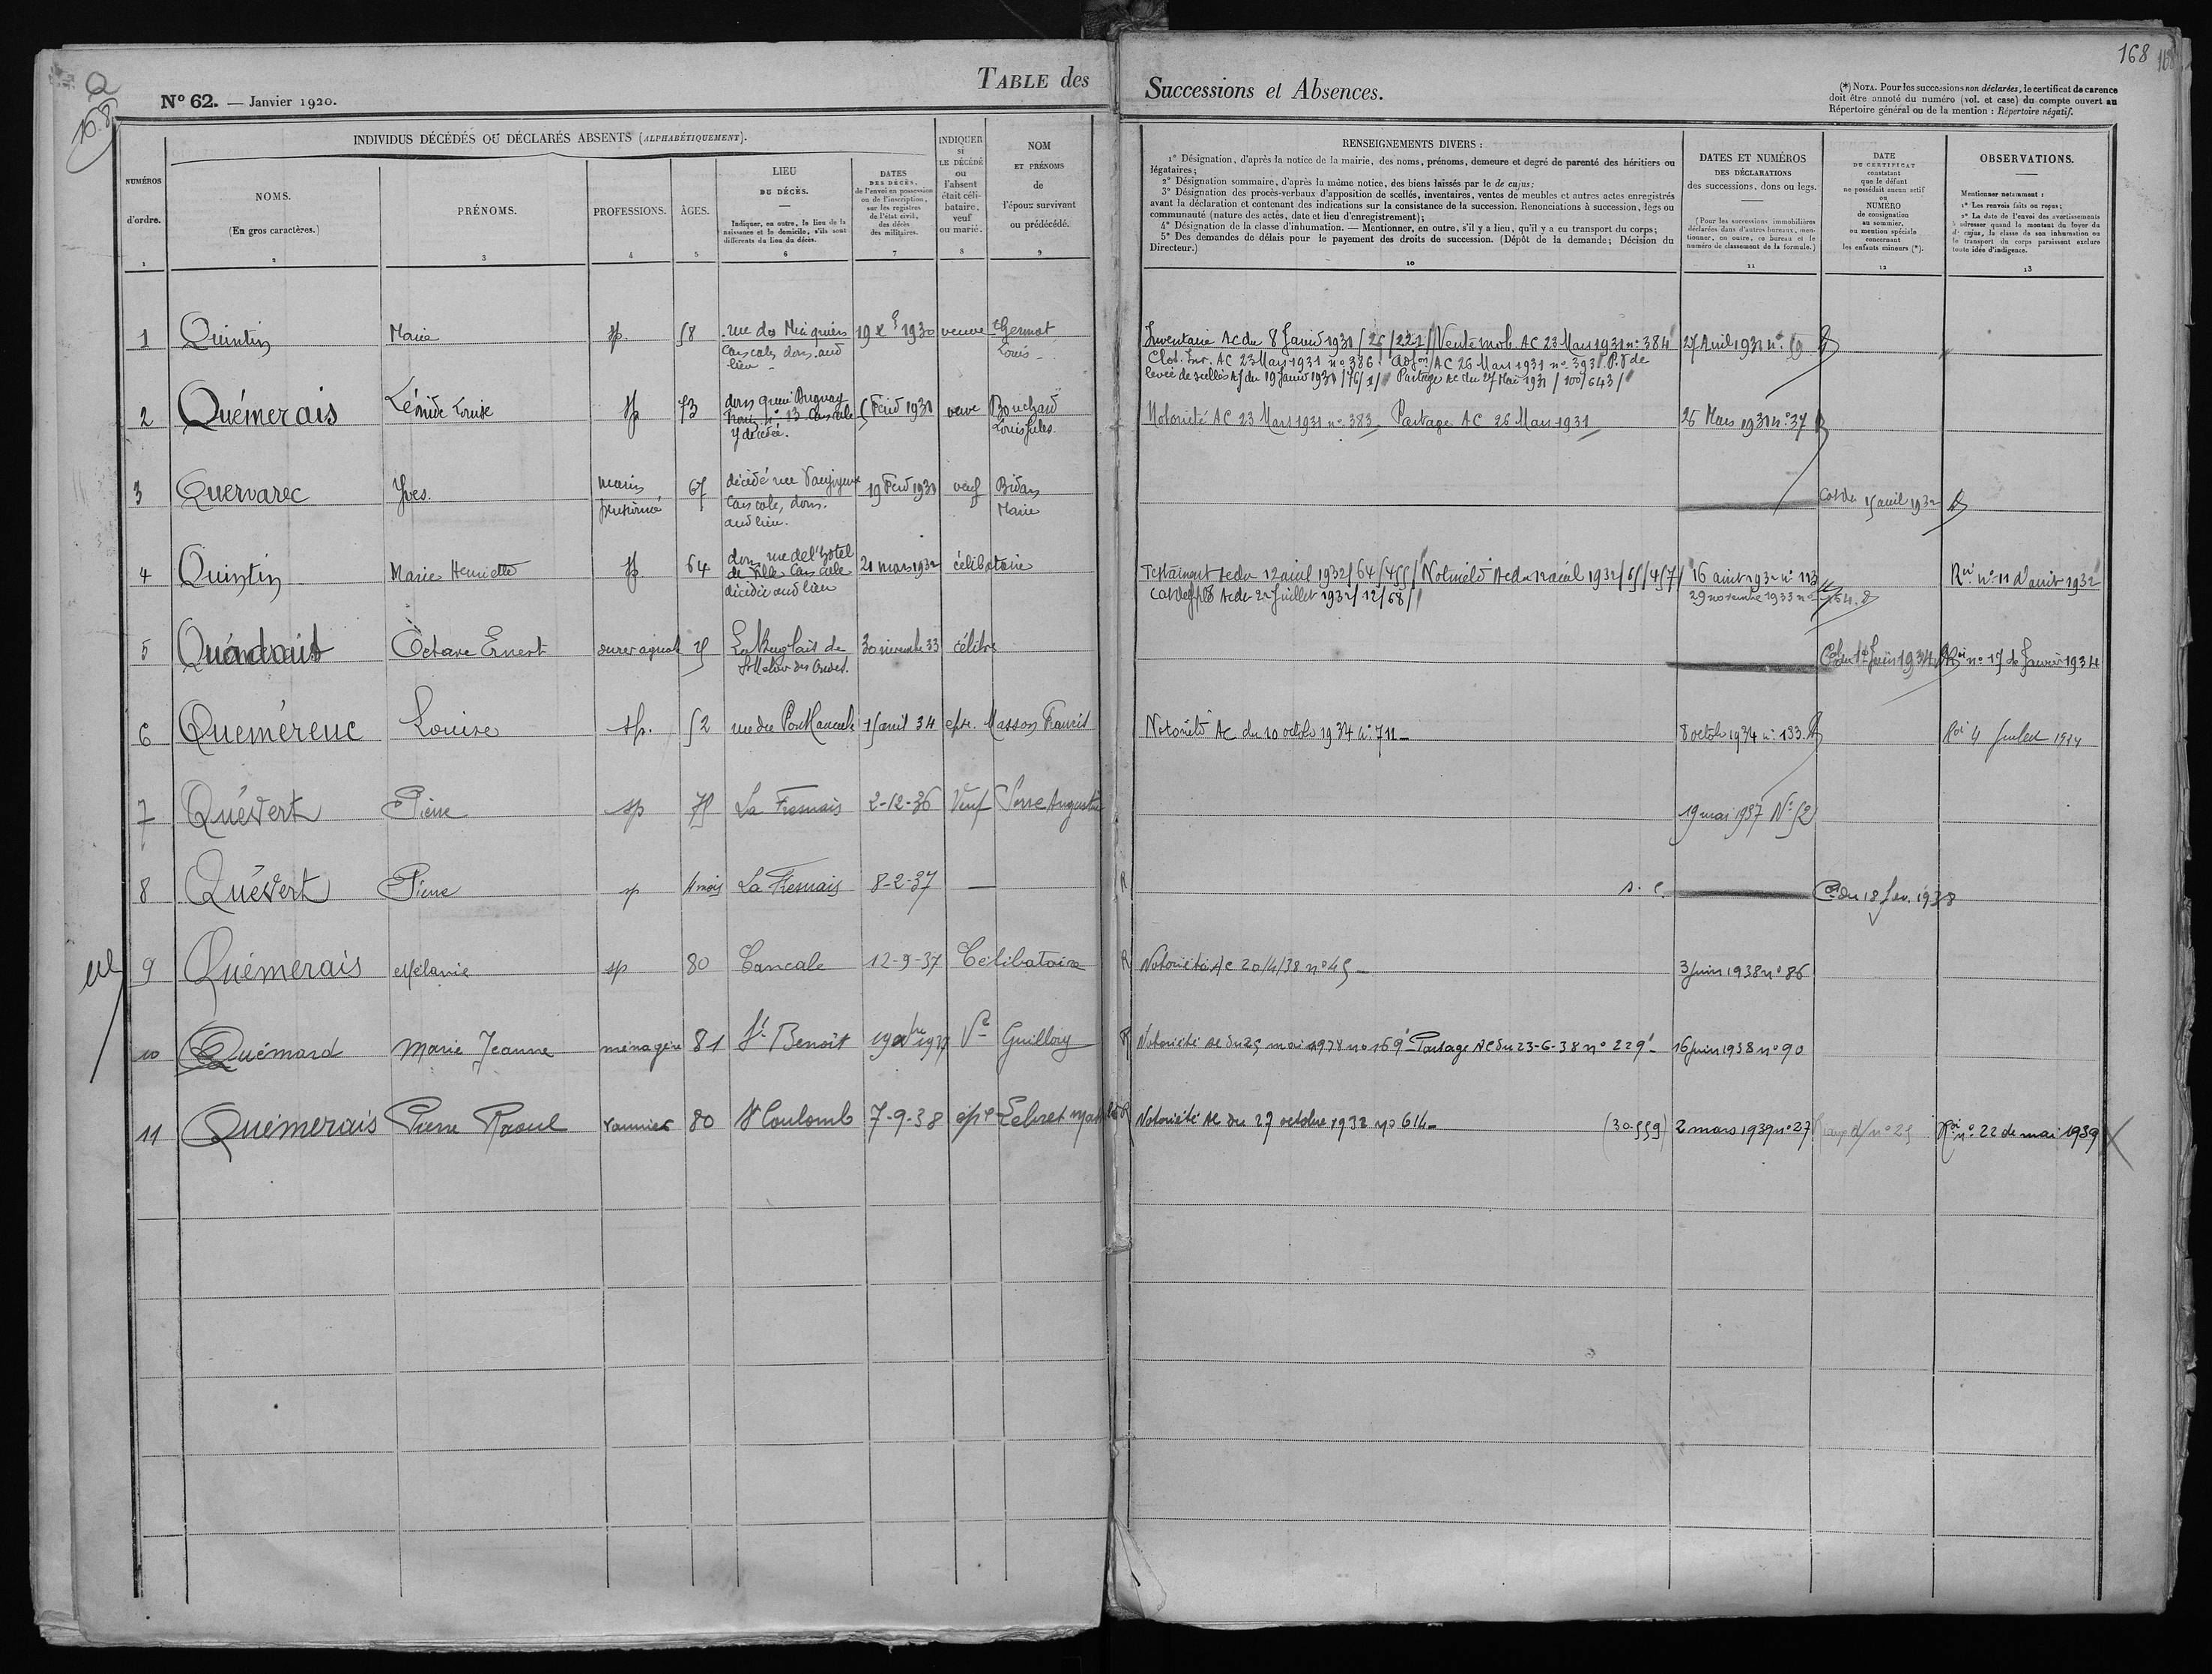 Q
168
N° 62. — Janvier 1920.
TABLE des
Successions et Absences.
168
(*) NOTA. Pour les successions non déclarées, le certificat de carence
doit être annoté du numéro (vol. et case) du compte ouvert au
Répertoire général ou de la mention : Répertoire négatif.
INDIVIDUS DÉCÉDÉS OU DÉCLARÉS ABSENTS (ALPHABÉTIQUEMENT).
NUMÉROS
d'ordre.
1
NOMS.
(En gros caractères.)
2
PRÉNOMS.
3
PROFESSIONS.
4
ÂGES.
5
LIEU
DU DÉCÈS.
Indiquer, en outre, le lieu de la
naissance et le domicile, s'ils sont
différents du lieu du décès.
6
DATES
DES DÉCÈS,
de l'envoi en possession
ou de l'inscription,
sur les registres
de l'état civil,
des décès
des militaires.
7
INDIQUER
si
LE DÉCÉDÉ
ou
l'absent
était céli-
bataire,
veuf
ou marié.
8
NOM
ET PRÉNOMS
de
l'époux survivant
ou prédécédé.
9
RENSEIGNEMENTS DIVERS :
1° Désignation, d'après la notice de la mairie, des noms, prénoms, demeure et degré de parenté des héritiers ou
légataires;
2° Désignation sommaire, d'après la même notice, des biens laissés par le de cujus;
3° Désignation des procès-verbaux d'apposition de scellés, inventaires, ventes de meubles et autres actes enregistrés
avant la déclaration et contenant des indications sur la consistance de la succession. Renonciations à succession, legs ou
communauté (nature des actes, date et lieu d'enregistrement);
4° Désignation de la classe d'inhumation. — Mentionner, en outre, s'il y a lieu, qu'il y a eu transport du corps;
5° Des demandes de délais pour le payement des droits de succession. (Dépôt de la demande; Décision du
Directeur.)
10
DATES ET NUMÉROS
DES DÉCLARATIONS
des successions, dons ou legs.
(Pour les successions immobilières
déclarées dans d'autres bureaux, men-
tionner, en outre, ce bureau et le
numéro de classement de la formule.)
11
DATE
DU CERTIFICAT
constatant
que le défunt
ne possédait aucun actif
ou
NUMÉRO
de consignation
au sommier,
ou mention spéciale
concernant
les enfants mineurs (*).
12
OBSERVATIONS.
Mentionner notamment :
1° Les renvois faits ou reçus;
2° La date de l'envoi des avertissements
à adresser quand le montant du loyer du
de cujus, la classe de son inhumation ou
le transport du corps paraissent exclure
toute idée d'indigence.
13
1 Quintin Marie sp. 58 rue des Minquiers 19 Xe 1930 veuve Gennot
Cancale, dom. aud Louis
lieu
Inventaire AC du 8 Janvd 1931 /26/221/ Vente mob. AC 23 Mars 1931 n° 384 27 Avril 1931 n°
Clot. Inv. AC 23 Mars 1931 n° 386. Adjon AC 26 Mars 1931 n° 393 P.V de
levée de scellés AJ du 19 Janvd 1931 /76/1/ Partage AC du 27 Mai 1931 /100/643/
2 Quémerais Léonide Louise sp 73 dom quai Duguay 5 Févd 1931 veuve Bouchard
Trouin n° 13 Cancale Louis Jules
y décédée.
Notoriété AC 23 Mars 1931 n° 383. Partage AC 26 Mars 1931 28 Mars 1931 n° 37
3 Quervarec Yves marin 67 décédé rue 19 Févd 1931 veuf Bidan
pensionné Cancale, dom. Marie
aud lieu.
Cat du 15 avril 1932
4 Quintin Marie Henriette sp 64 dom rue de l'hôtel 21 mars 1932 célibataire
de Ville Cancale
décédée aud lieu
Testament AC du 12 avril 1932/64/455/ Notriété AC du 12 avril 1932/65/457/ 16 août 1932 n° 113 Roi n° 11 d'août 1932
AC du 22 Juillet 1932/12/68/ 29 novembre 1933 n° 164
5 Octave Ernest ouvr agricole de 30 novembre 33 célibre
St Méloir des Ondes.
Cat du 1er Juin 1934 Roi n° 17 de Janvier 1934
6 Queméreuc Louise sp. 52 rue du Port Cancale 15 avril 34 epse. Masson Francis
Notoriété AC du 10 octobr 1934 n° 711 8 octobr 1934 n° 133. Roi 4 Juillet 1934
7 Quévert Pierre sp 75 La Fresnais 2-12-36 Veuf Serre Augustine
19 mai 1937 N° 52
8 Quévert Pierre sp 4 mois La Fresnais 8-2-37 —
R s. c. Cat du 18 fev. 1938
9 Quémerais Mélanie sp 80 Cancale 12-9-37 Célibataire
R Notoriété AC 20/4/38 n° 45 3 juin 1938 n° 86
10 Quémard Marie Jeanne ménagère 81 St Benoît 19 1937 Ve Guillory
R Notoriété AC du 25 mai 1938 n° 169 Partage AC du 23-6-38 n° 229 16 juin 1938 n° 90
11 Quémerais Pierre Raoul vannier 80 St Coulomb 7-9-38 épx Lebret
R Notoriété AC du 27 octobre 1938 n° 614 (30.559) 2 mars 1939 n° 27 n° 25 Roi n° 22 de mai 1939